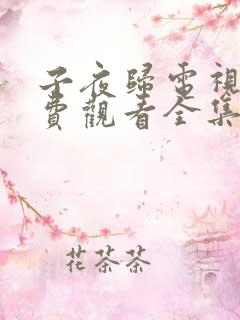 子夜歸電視
費觀看全集
花茶茶